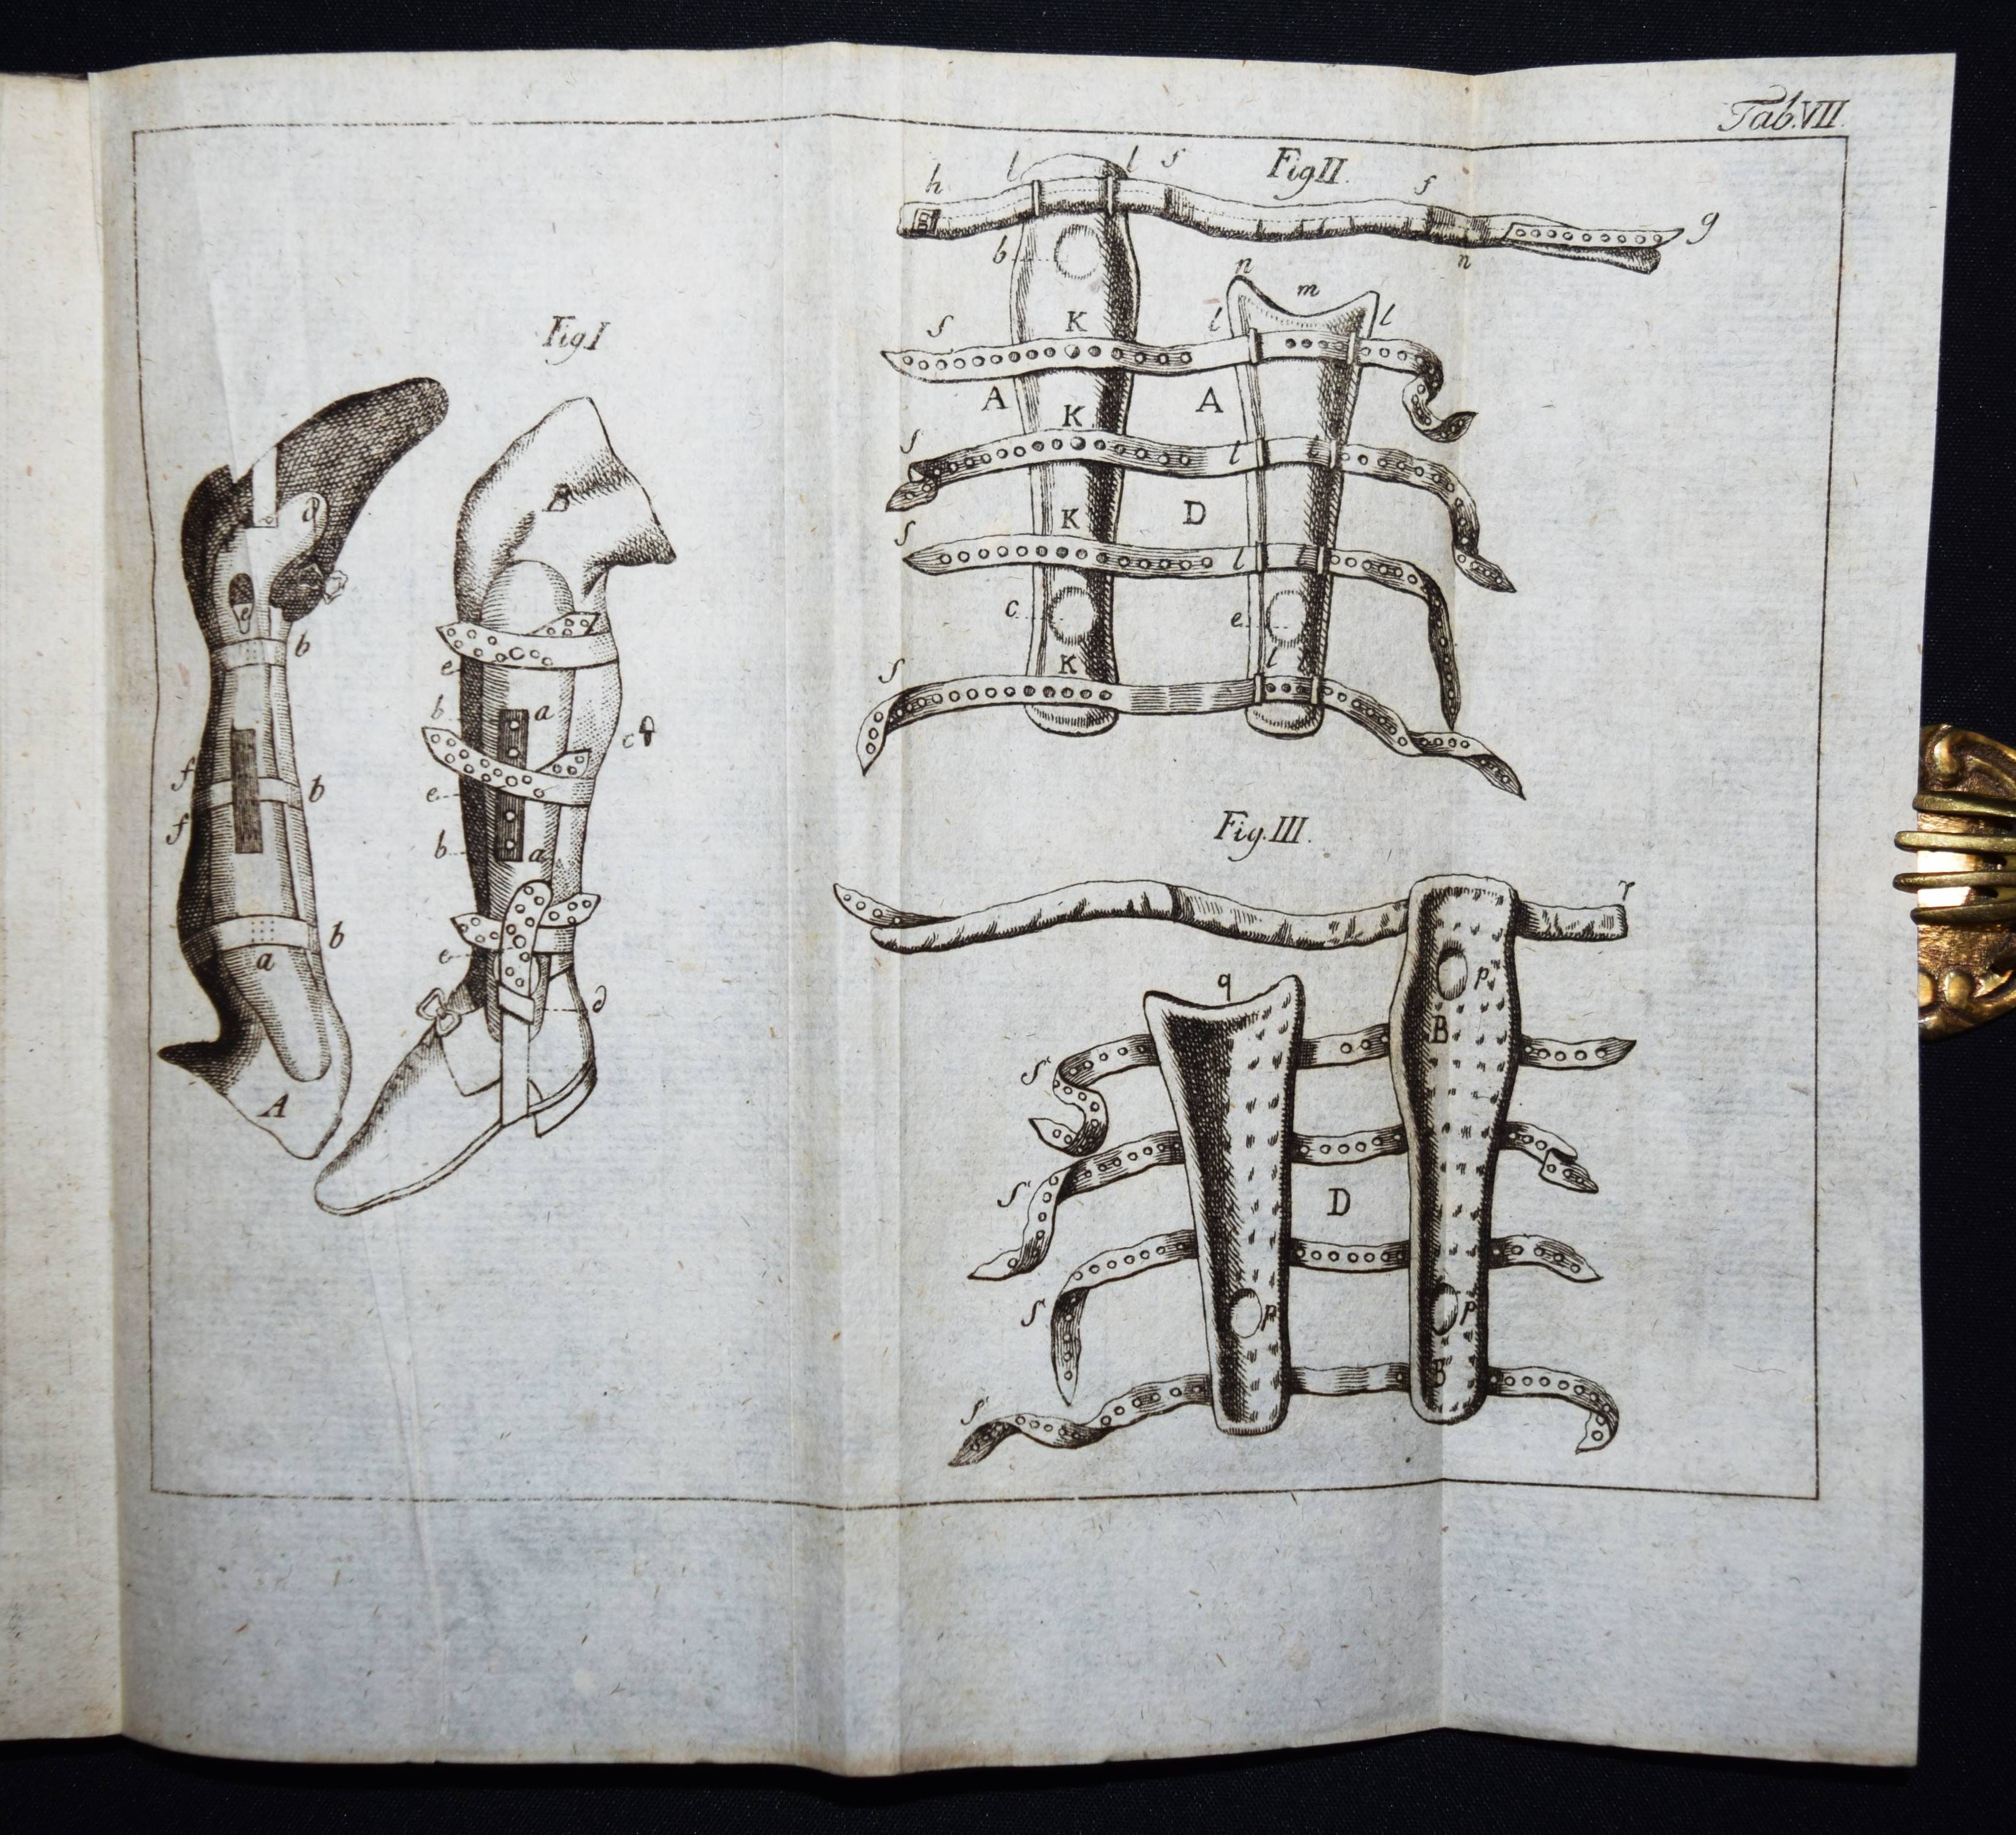 Tab.VII.
Fig II.
h l l s s g
b n
n m
s K l l
A K A
s l l
K D
s l
c e
s K l l
Fig I
B
d
e b
e
b a
c
f b
e
f b a
e b
a
d
A
Fig. III.
r
q p
B
s
s D
s p p
B
s